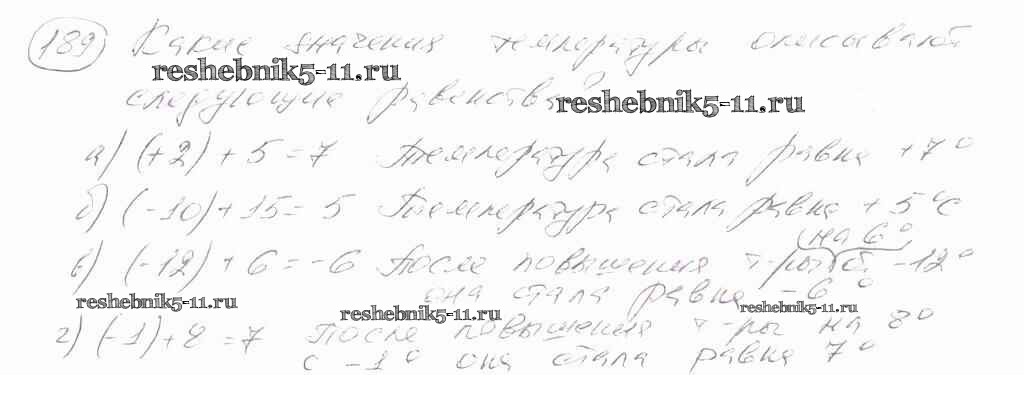 189) Какие значения температуры описывают
reshebnik5-11.ru
следующие равенства?
reshebnik5-11.ru
а) (+2) + 5 = 7 Температура стала равна +7°
б) (-10) + 15 = 5 Температура стала равна +5°С
на 6°
в) (-12) + 6 = -6 После повышения т-ры с -12°
она стала равна -6°
reshebnik5-11.ru
reshebnik5-11.ru
reshebnik5-11.ru
г) (-1) + 8 = 7 После повышения т-ры на 8°
с -1° она стала равна 7°